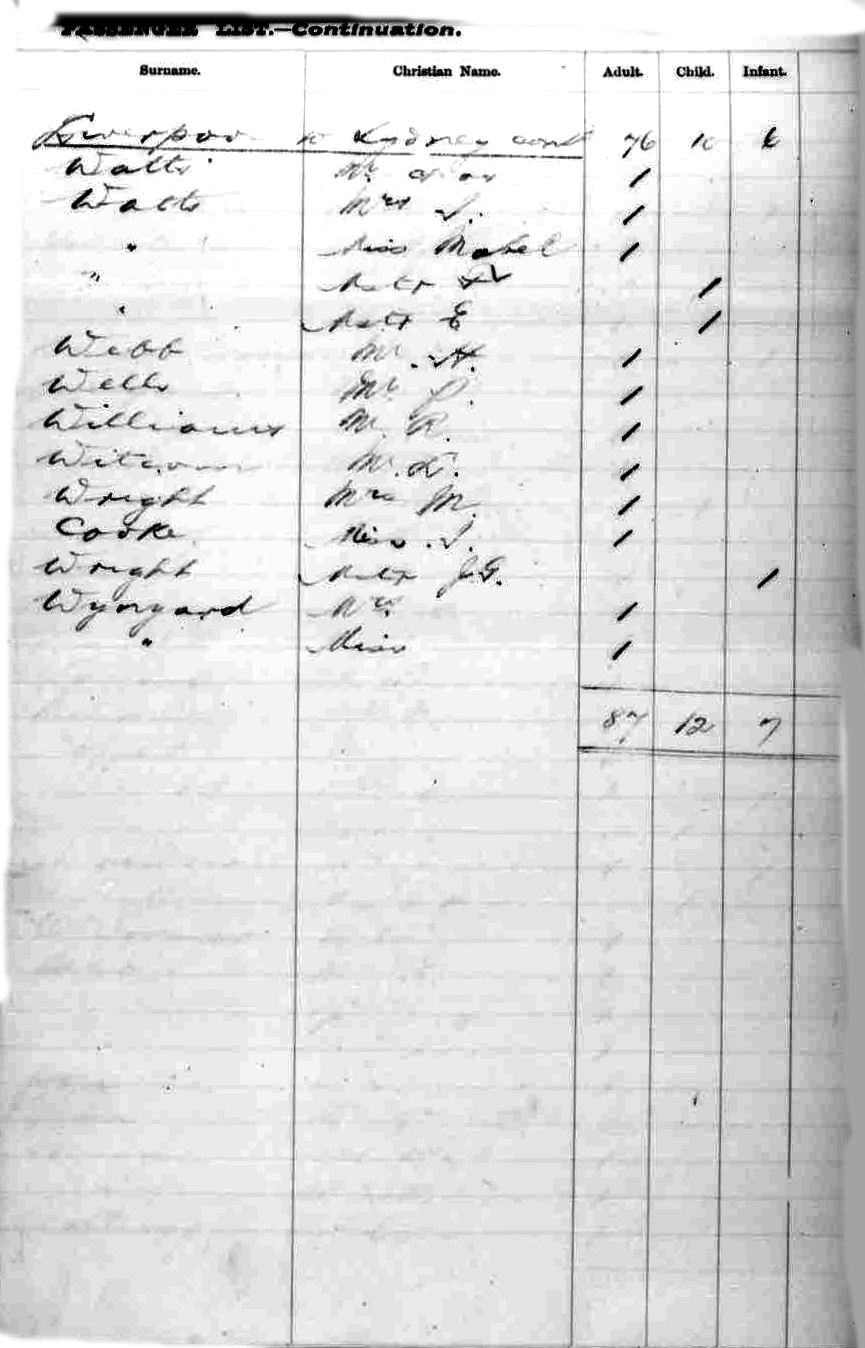 PASSENGER LIST.—Continuation.
Surname. Christian Name. Adult. Child. Infant.
Liverpool to Sydney cont 76 10 6
Watts Mr 1
Watts Mrs 1
" Miss Mabel 1
" Mstr 1
" Mstr E 1
Webb Mr. H. 1
Wells Mr 1
Williams Mr R. 1
Mr. 1
Wright Mrs M. 1
Cooke Miss 1
Wright Mstr J.G. 1
Wyngard Mrs. 1
" Miss 1
87 12 7